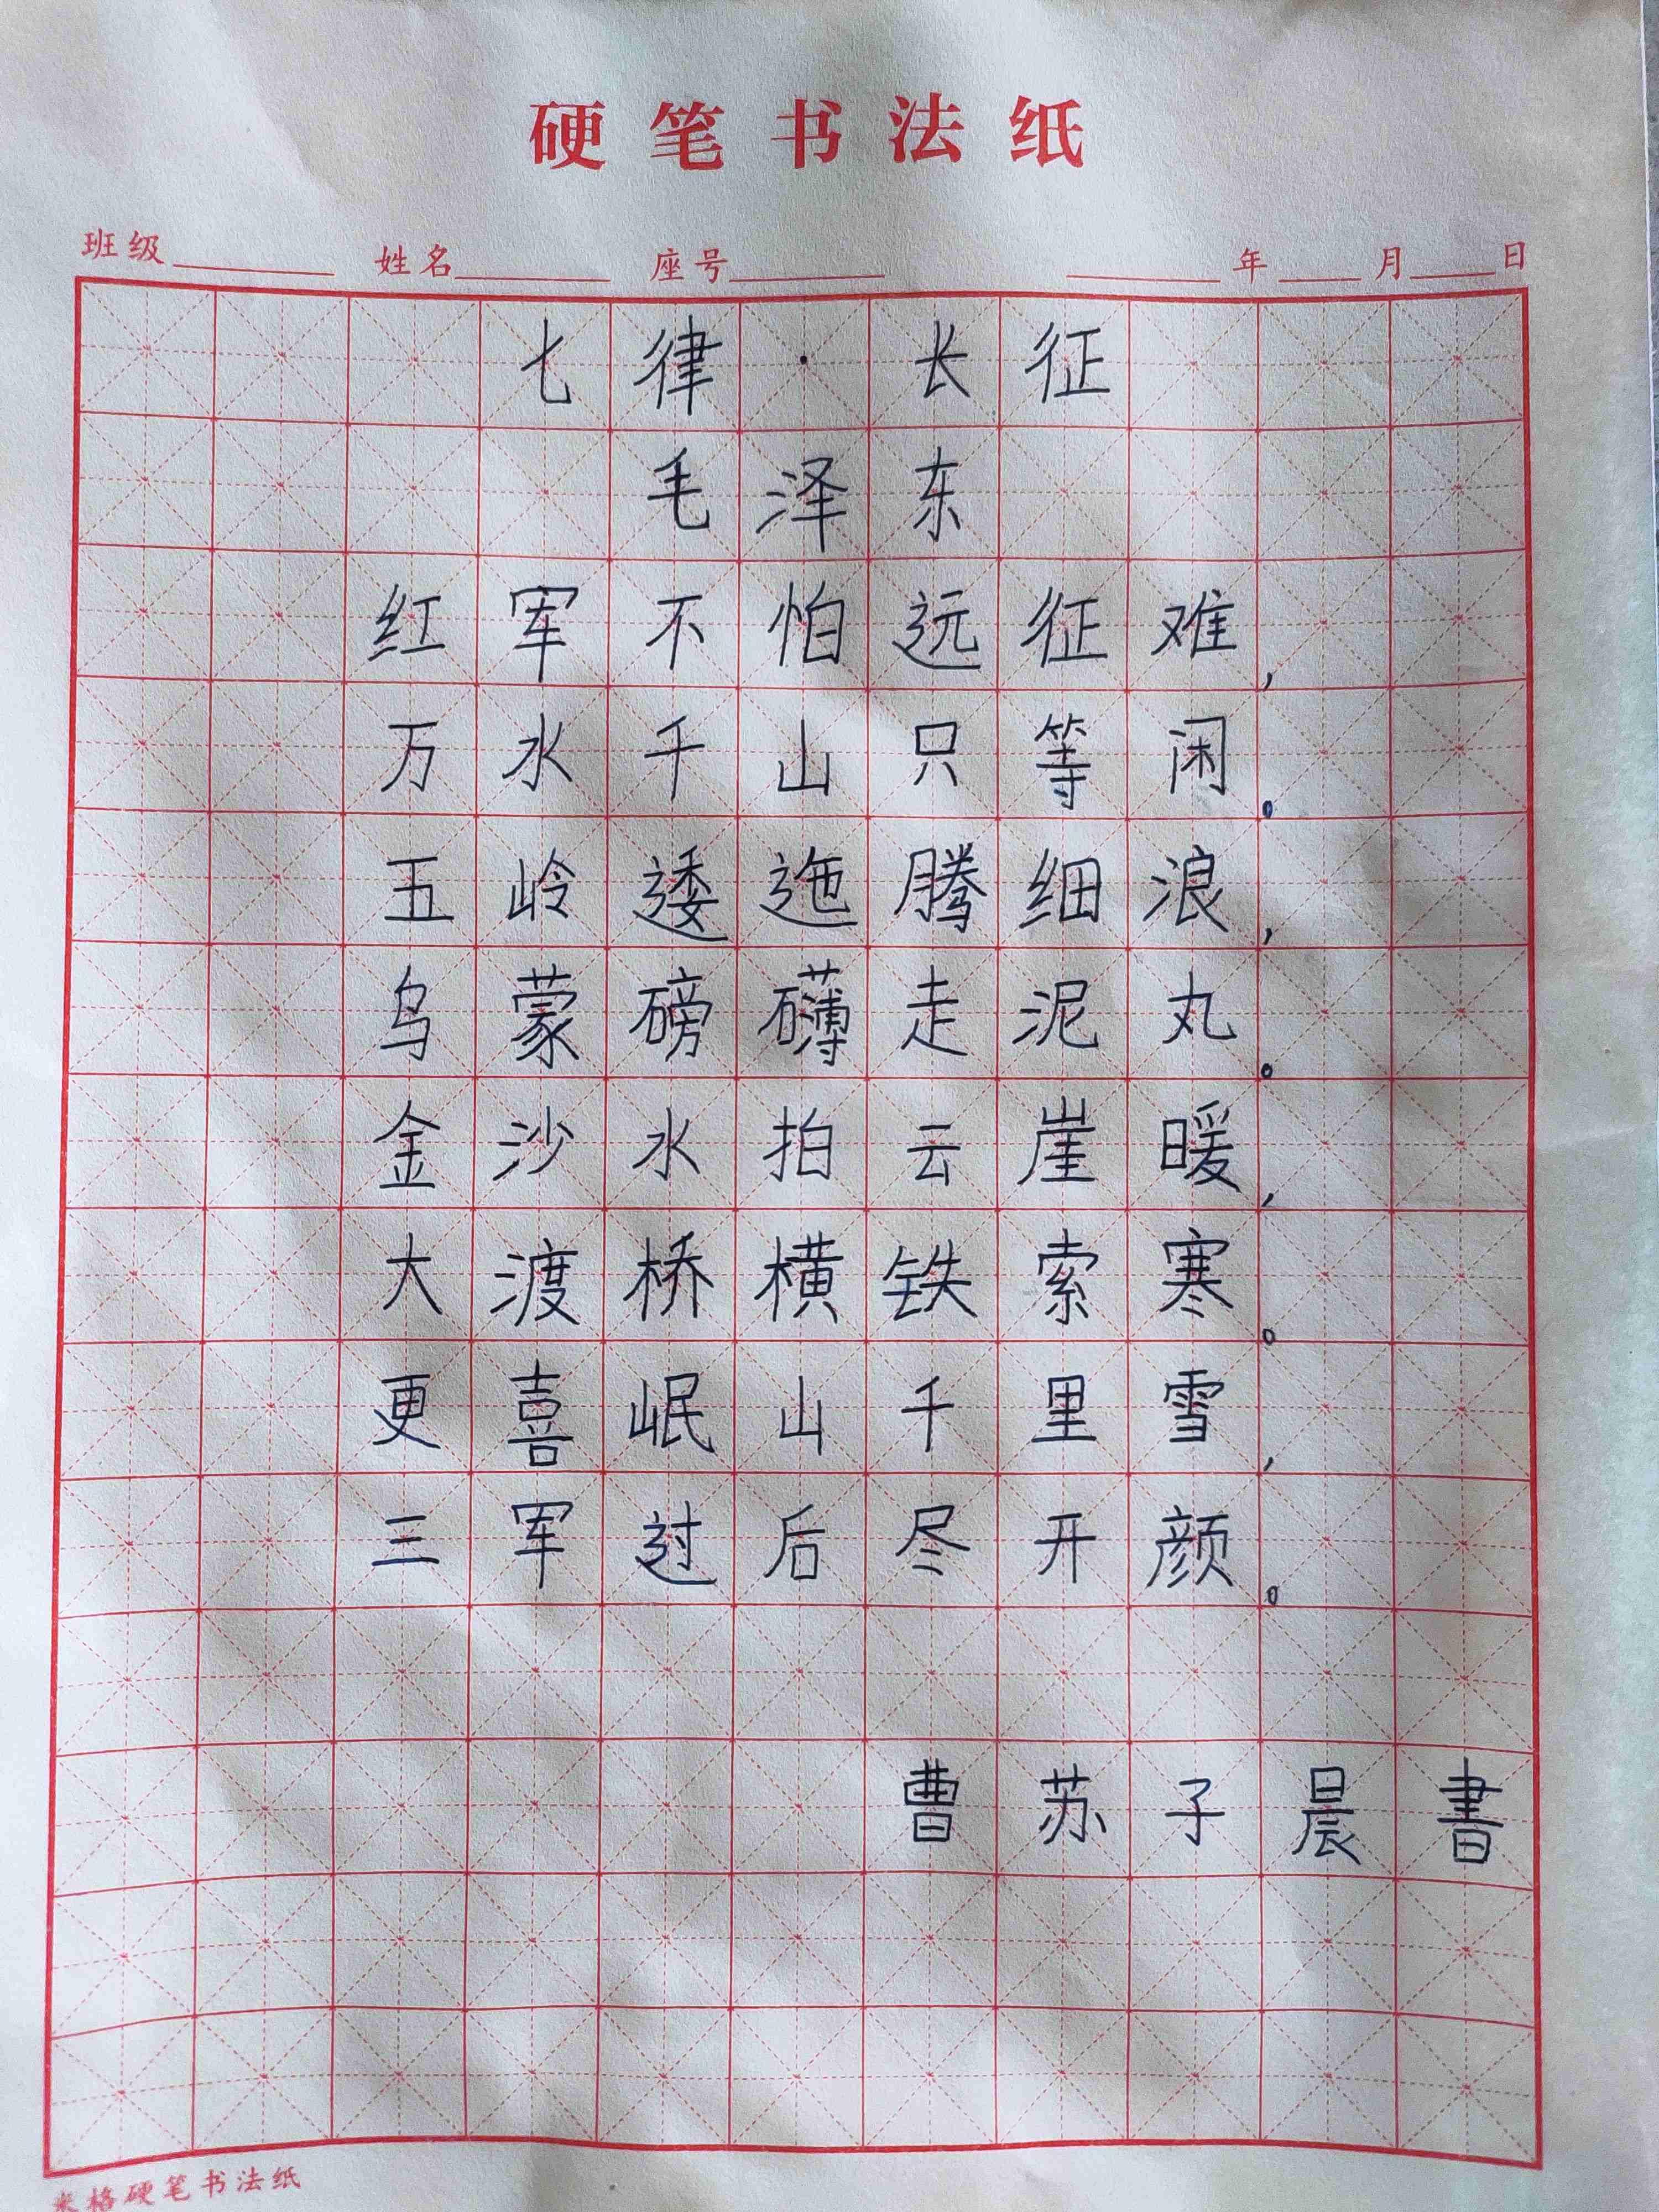 硬笔书法纸
班级 姓名 座号 年 月 日
七律·长征
毛泽东
红军不怕远征难，
万水千山只等闲。
五岭逶迤腾细浪，
乌蒙磅礴走泥丸。
金沙水拍云崖暖，
大渡桥横铁索寒。
更喜岷山千里雪，
三军过后尽开颜。
曹苏子晨書
米格硬笔书法纸